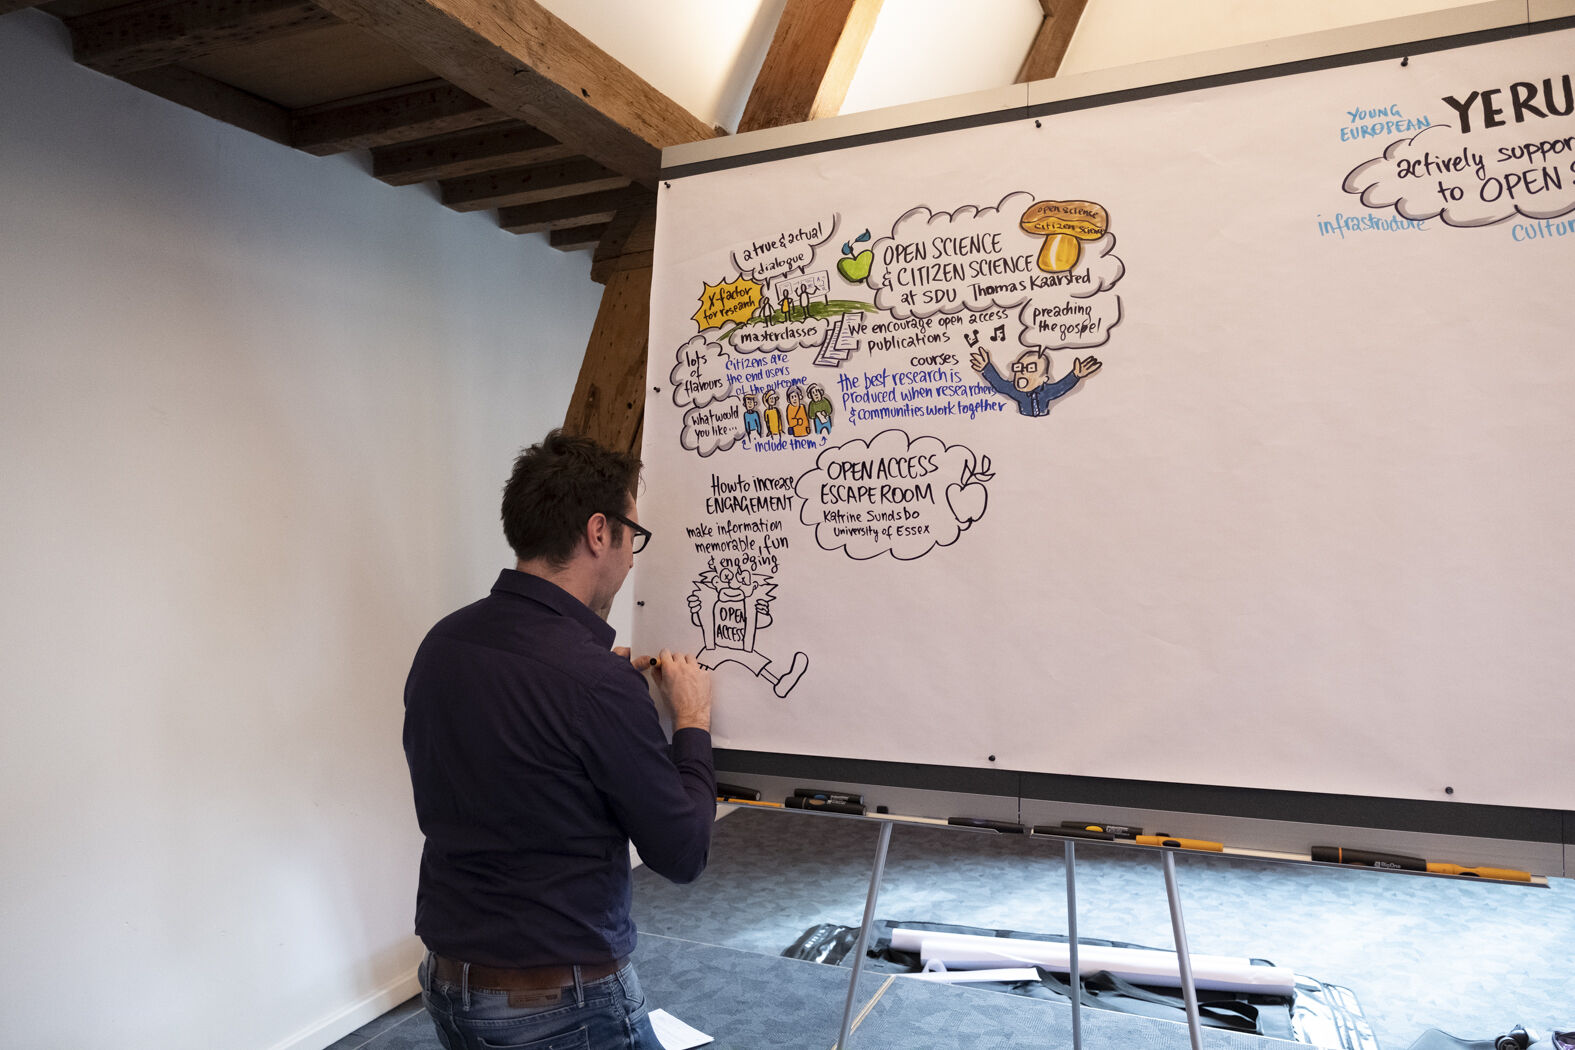 YOUNG
EUROPEAN
YERU
actively suppor
to OPEN S
infrastructure
cultur
a true & actual
dialogue
X-factor
for research
masterclasses
lots
of
flavours
Citizens are
the end users
of the outcome
what would
you like...
include them
open science
citizen science
OPEN SCIENCE
& CITIZEN SCIENCE
at SDU Thomas Kaarsted
We encourage open access
publications
courses
preaching
the gospel
the best research is
produced when researchers
& communities work together
How to increase
ENGAGEMENT
make information
memorable, fun
& engaging
OPEN
ACCESS
OPEN ACCESS
ESCAPE ROOM
Katrine Sundsbo
University of Essex
BigOne